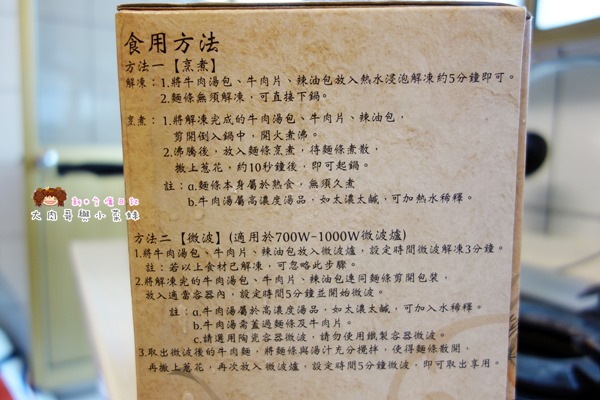 食用方法
方法一【烹煮】
解凍：1.將牛肉湯包、牛肉片、辣油包放入熱水浸泡解凍約5分鐘即可。
2.麵條無須解凍，可直接下鍋。
烹煮：1.將解凍完成的牛肉湯包、牛肉片、辣油包，
剪開倒入鍋中，開火煮沸。
2.沸騰後，放入麵條烹煮，待麵條煮散，
撒上蔥花，約10秒鐘後，即可起鍋。
註：a.麵條本身屬於熟食，無須久煮
b.牛肉湯屬高濃度湯品，如太濃太鹹，可加熱水稀釋。
大肉哥與小菜妹
方法二【微波】(適用於700W-1000W微波爐)
1.將牛肉湯包、牛肉片、辣油包放入微波爐，設定時間微波解凍3分鐘。
註：若以上食材已解凍，可忽略此步驟。
2.將解凍完的牛肉湯包、牛肉片、辣油包連同麵條剪開包裝，
放入適當容器內，設定時間5分鐘並開始微波。
註：a.牛肉湯屬於高濃度湯品，如太濃太鹹，可加入水稀釋。
b.牛肉湯需蓋過麵條及牛肉片。
c.請選用陶瓷容器微波，請勿使用鐵製容器微波。
3.取出微波後的牛肉麵，將麵條與湯汁充分攪拌，使得麵條散開，
再撒上蔥花，再次放入微波爐，設定時間5分鐘微波，即可取出享用。